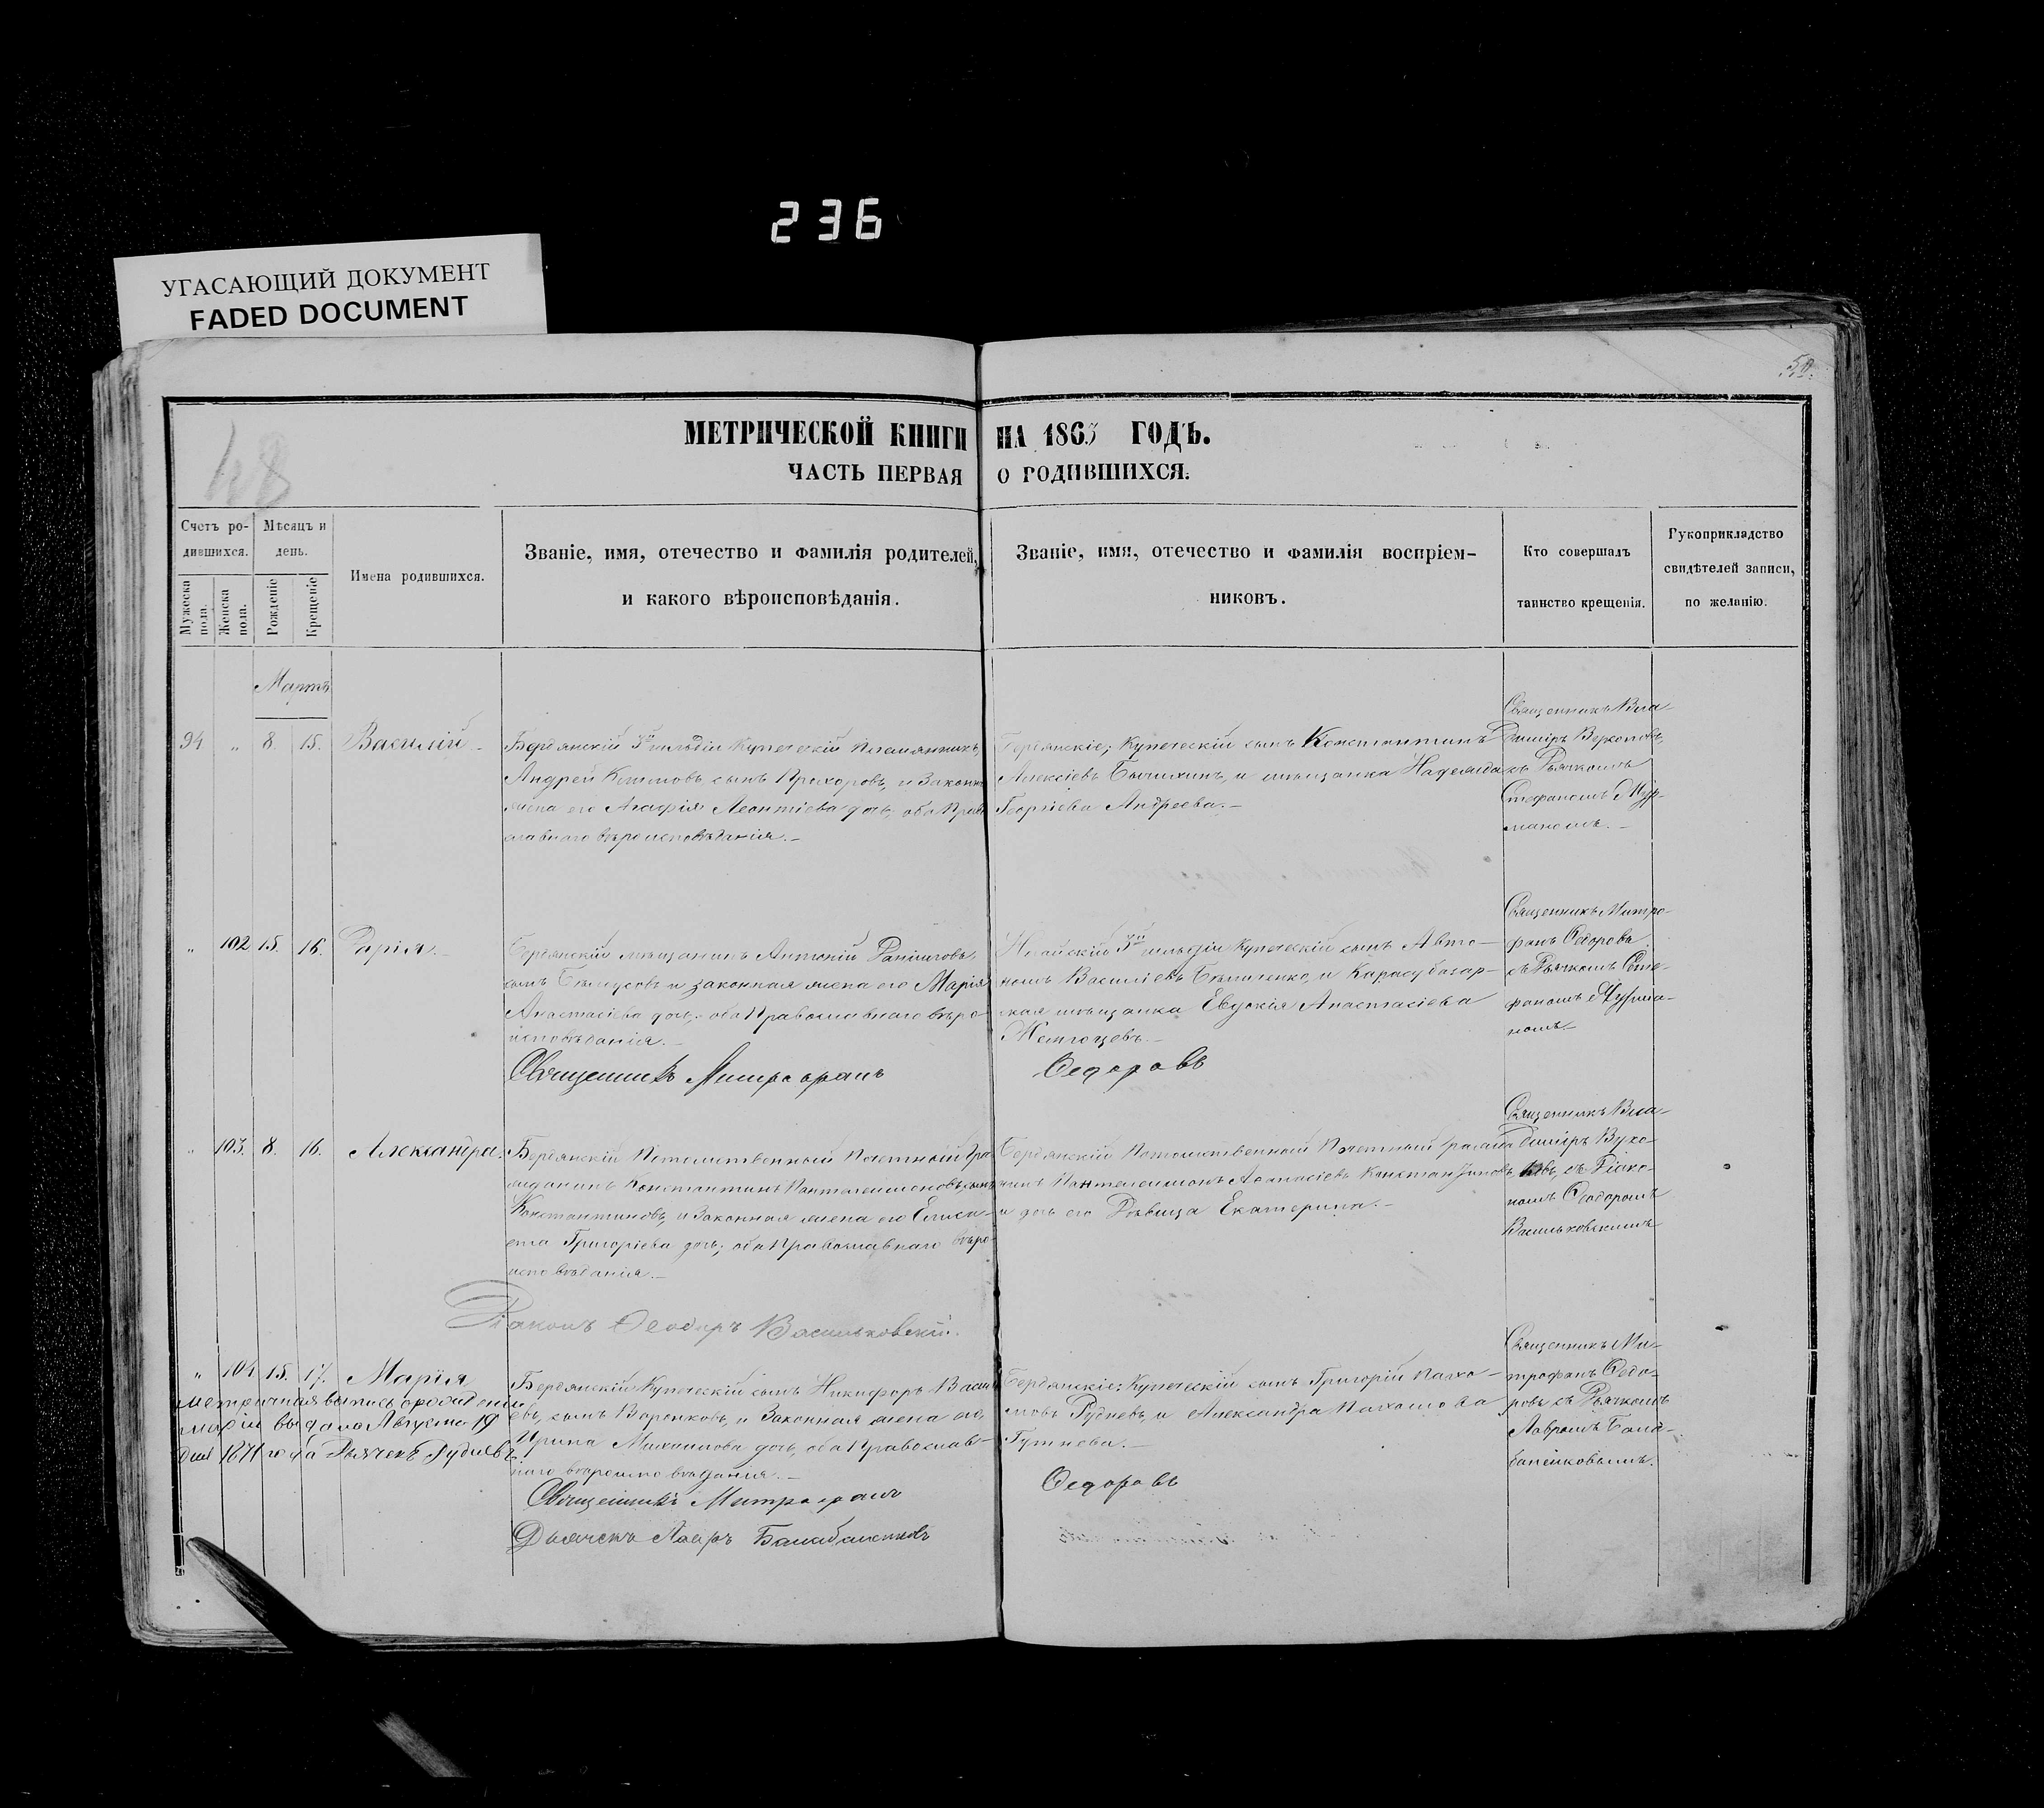 236
УГАСАЮЩИЙ ДОКУМЕНТ
FADED DOCUMENT
52.
48
МЕТРИЧЕСКОЙ КНИГИ НА 1863 ГОДЪ.
ЧАСТЬ ПЕРВАЯ О РОДИВШИХСЯ.
Счетъ ро-
дившихся.
Мужеска пола.
Женска пола.
Мѣсяцъ и
день.
Рожденіе
Крещеніе
Имена родившихся.
Званіе, имя, отечество и фамилія родителей,
и какого вѣроисповѣданія.
Званіе, имя, отечество и фамилія воспріем-
никовъ.
Кто совершалъ
таинство крещенія.
Рукоприкладство
свидѣтелей записи,
по желанію.
Мартъ
94 „ 8. 15. Василій
Бердянскій 3й гильдіи Купеческій племянникъ,
Андрей Климовъ сынъ Прохоровъ, и Законная
жена его Агафія Леонтіева дочь, оба Право
славнаго вѣроисповѣданія.
Бердянскіе; Купеческій сынъ Константинъ
Алексіевъ, и мѣщанка Надежда
Георгіева Андреева.
Священникъ Вла-
диміръ
съ Дьячкомъ
Стефаномъ Мур-
маномъ.
„ 102 15. 16. Дарія.
Бердянскій мѣщанинъ Антоній Даніиловъ,
сынъ Бѣлоусовъ и законная жена его Марія
Анастасіева дочь, оба Православнаго вѣро-
исповѣданія.
Ногайскій 3й гильдіи Купеческій сынъ Авто-
номъ Василіевъ, и Карасубазар-
ская мѣщанка Евдокія Анастасіева
Священникъ Митро-
фанъ Федоровъ
съ Дьячкомъ Сте-
фаномъ Мурма-
номъ
Священникъ Митрофанъ Федоровъ
„ 103. 8. 16. Александра.
Бердянскій Потомственный Почетный Гра
жданинъ Константинъ Пантелеимоновъ, сынъ
Константиновъ, и Законная жена его Елиса-
вета Григоріева дочь; оба Православнаго вѣро-
исповѣданія.
Бердянскій Потомственный Почетный гражда
нинъ Пантелеимонъ Аѳанасіевъ Константиновъ,
и дочь его Дѣвица Екатерина.
Священникъ Вла-
диміръ Вуко-
съ Діако-
номъ Ѳеодоромъ
Васильковскимъ
Діаконъ Ѳеодоръ Васильковскій.
„ 104 15. 17. Марія
Метричная выпись о рожденіи
Маріи выдана Августа 19
дня 1871 года Дьячекъ Рудневъ
Бердянскій Купеческій сынъ Никифоръ Васил
евъ, сынъ Воронковъ, и Законная жена его,
Ирина Михаилова дочь, оба Православ-
наго вѣроисповѣданія.
Бердянскіе: Купеческій сынъ Григорій Пахо-
мовъ Рудневъ, и Александра Пахомова
Священникъ Ми-
трофанъ Федо-
ровъ съ Дьячкомъ
Лавромъ Бала-
баненковымъ.
Священникъ Митрофанъ Федоровъ
Дьячекъ Лавръ Балабаненковъ